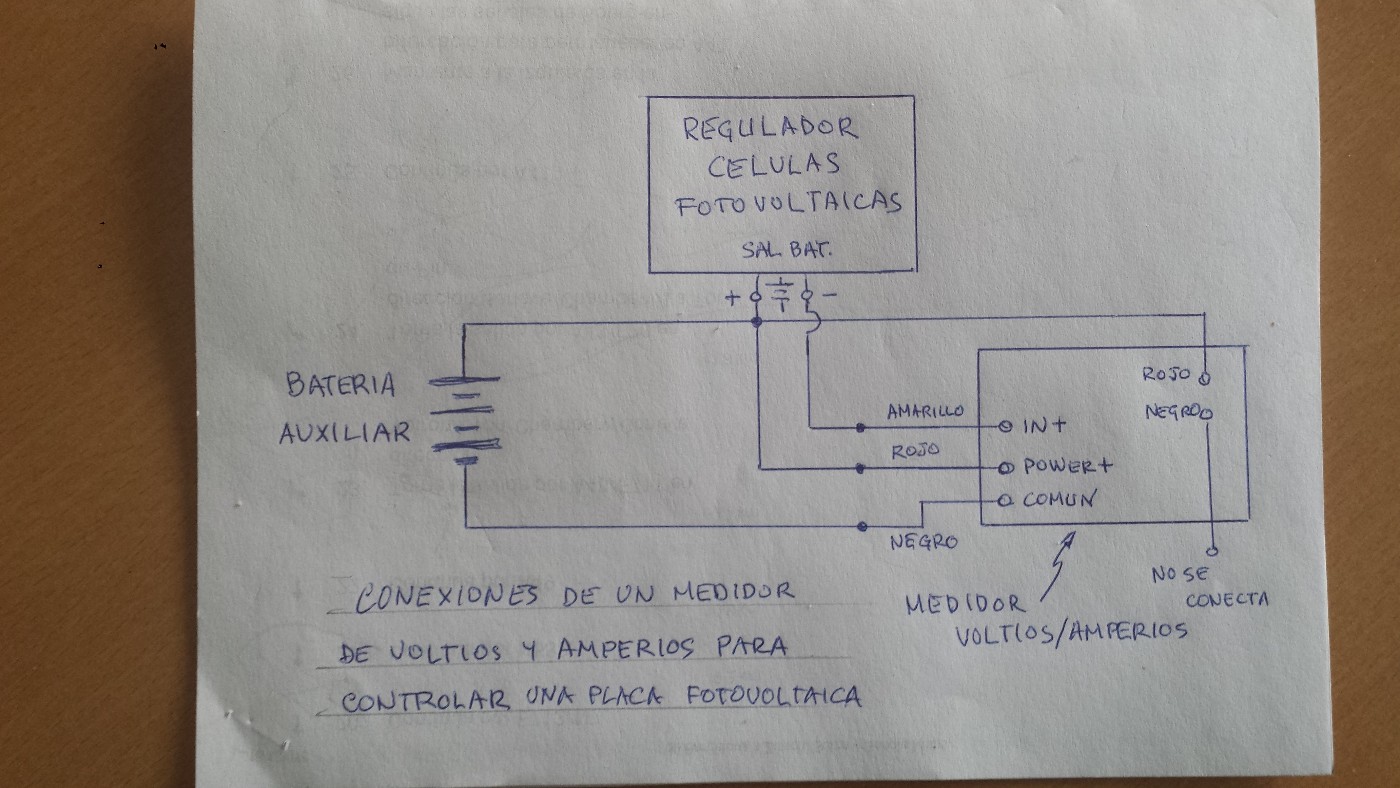 REGULADOR
CELULAS
FOTOVOLTAICAS
SAL BAT.
+ -
BATERIA
AUXILIAR
ROJO
NEGRO
AMARILLO
IN+
ROJO
POWER+
COMUN
NEGRO
NO SE
CONECTA
MEDIDOR
VOLTIOS/AMPERIOS
CONEXIONES DE UN MEDIDOR
DE VOLTIOS Y AMPERIOS PARA
CONTROLAR UNA PLACA FOTOVOLTAICA